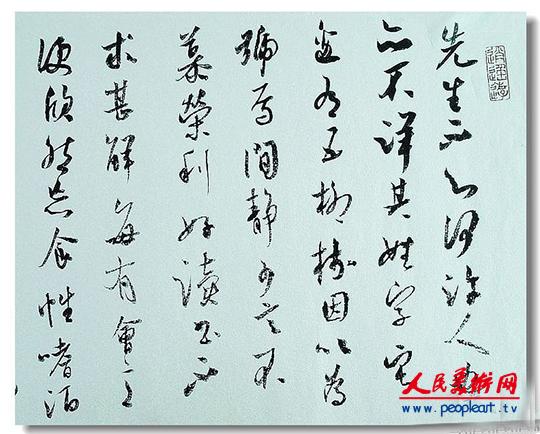 先生不知何許人也
亦不詳其姓字宅
邊有五柳樹因以為
號焉閒靜少言不
慕榮利好讀書不
求甚解每有會意
便欣然忘食性嗜酒
人民美術网
www.peopleart.tv